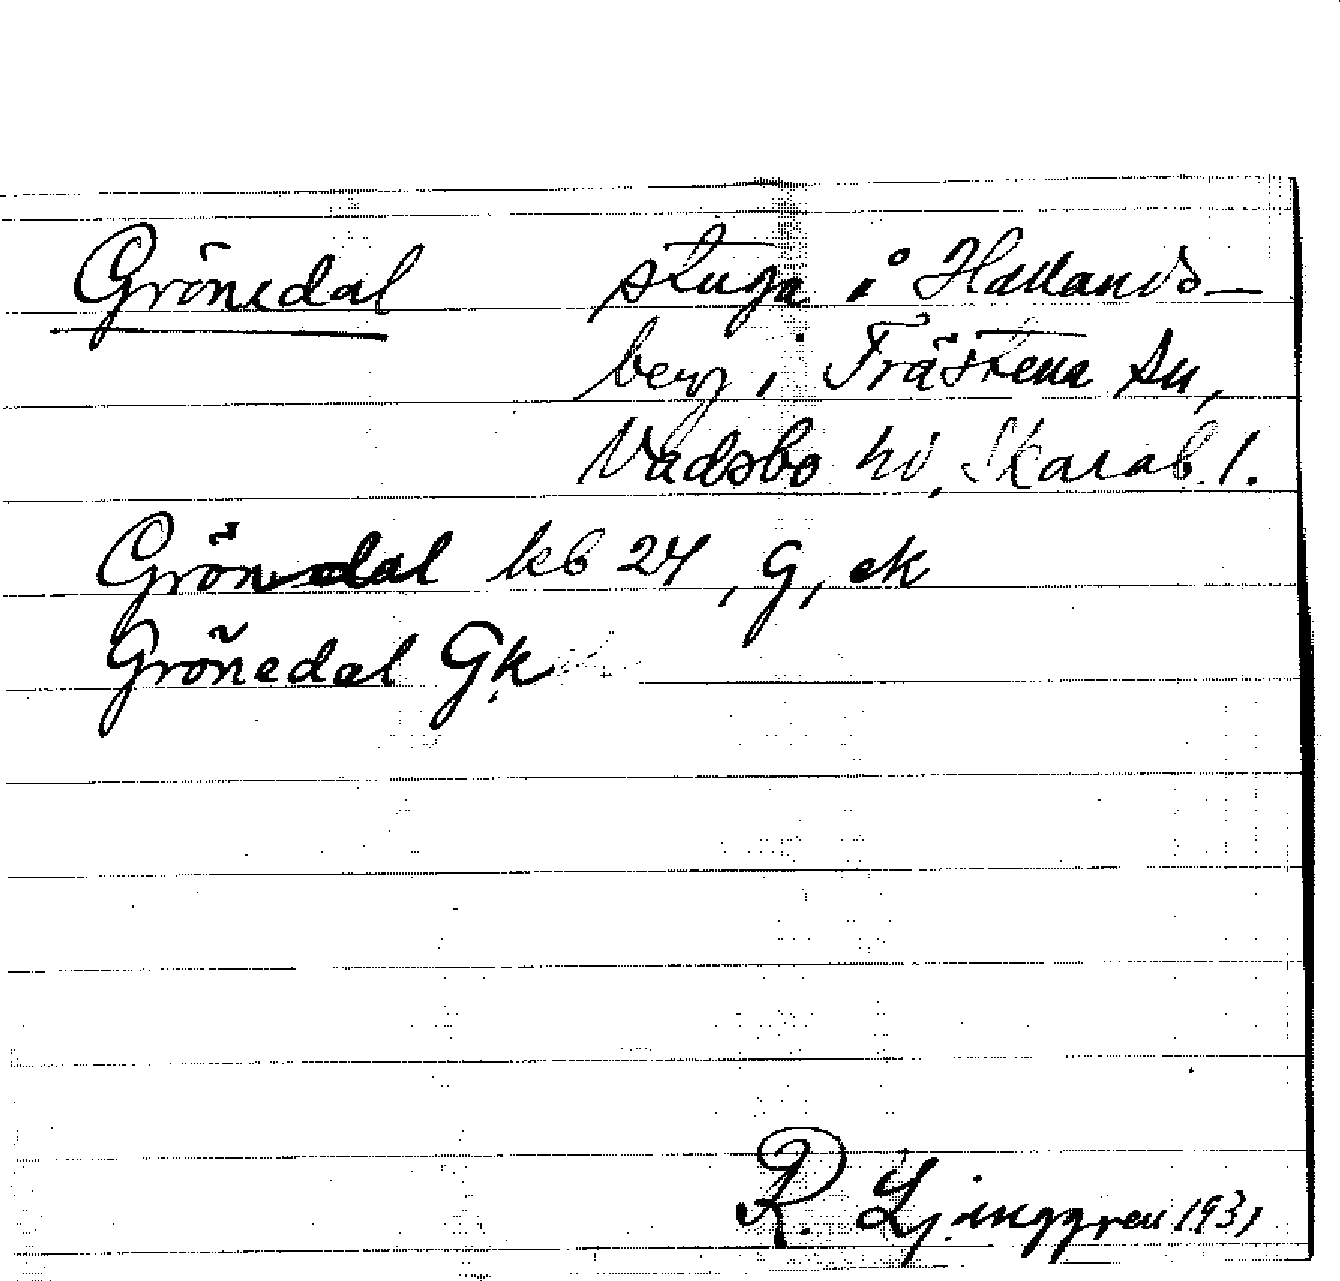 Grönedal stuga i Hallands-
berg, Trästena sn,
Vadsbo hd, Skarab. l.
Gröndal kb 24, G, ek
Grönedal Gk
R. Ljunggren 1931